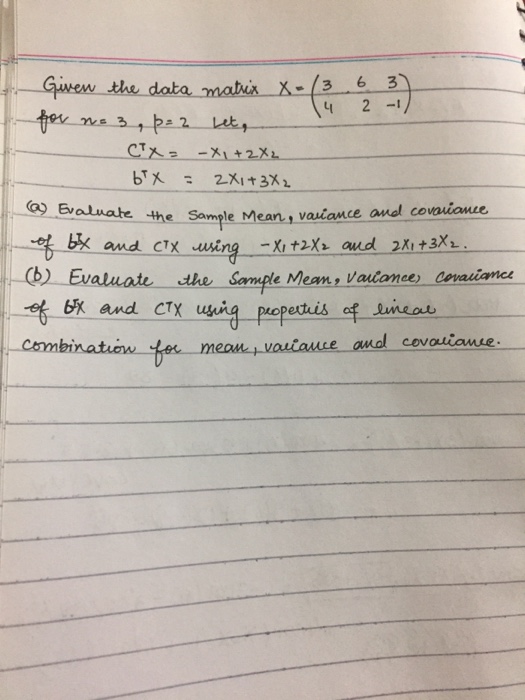 Given the data matrix X = (3 6 3
4 2 -1)
for n = 3, p = 2 Let,
CᵀX = -X₁ + 2X₂
bᵀX = 2X₁ + 3X₂
(a) Evaluate the Sample Mean, variance and covariance
of bᵀX and CᵀX using -X₁ + 2X₂ and 2X₁ + 3X₂.
(b) Evaluate the Sample Mean, Variance, Covariance
of bᵀX and CᵀX using properties of linear
combination for mean, variance and covariance.